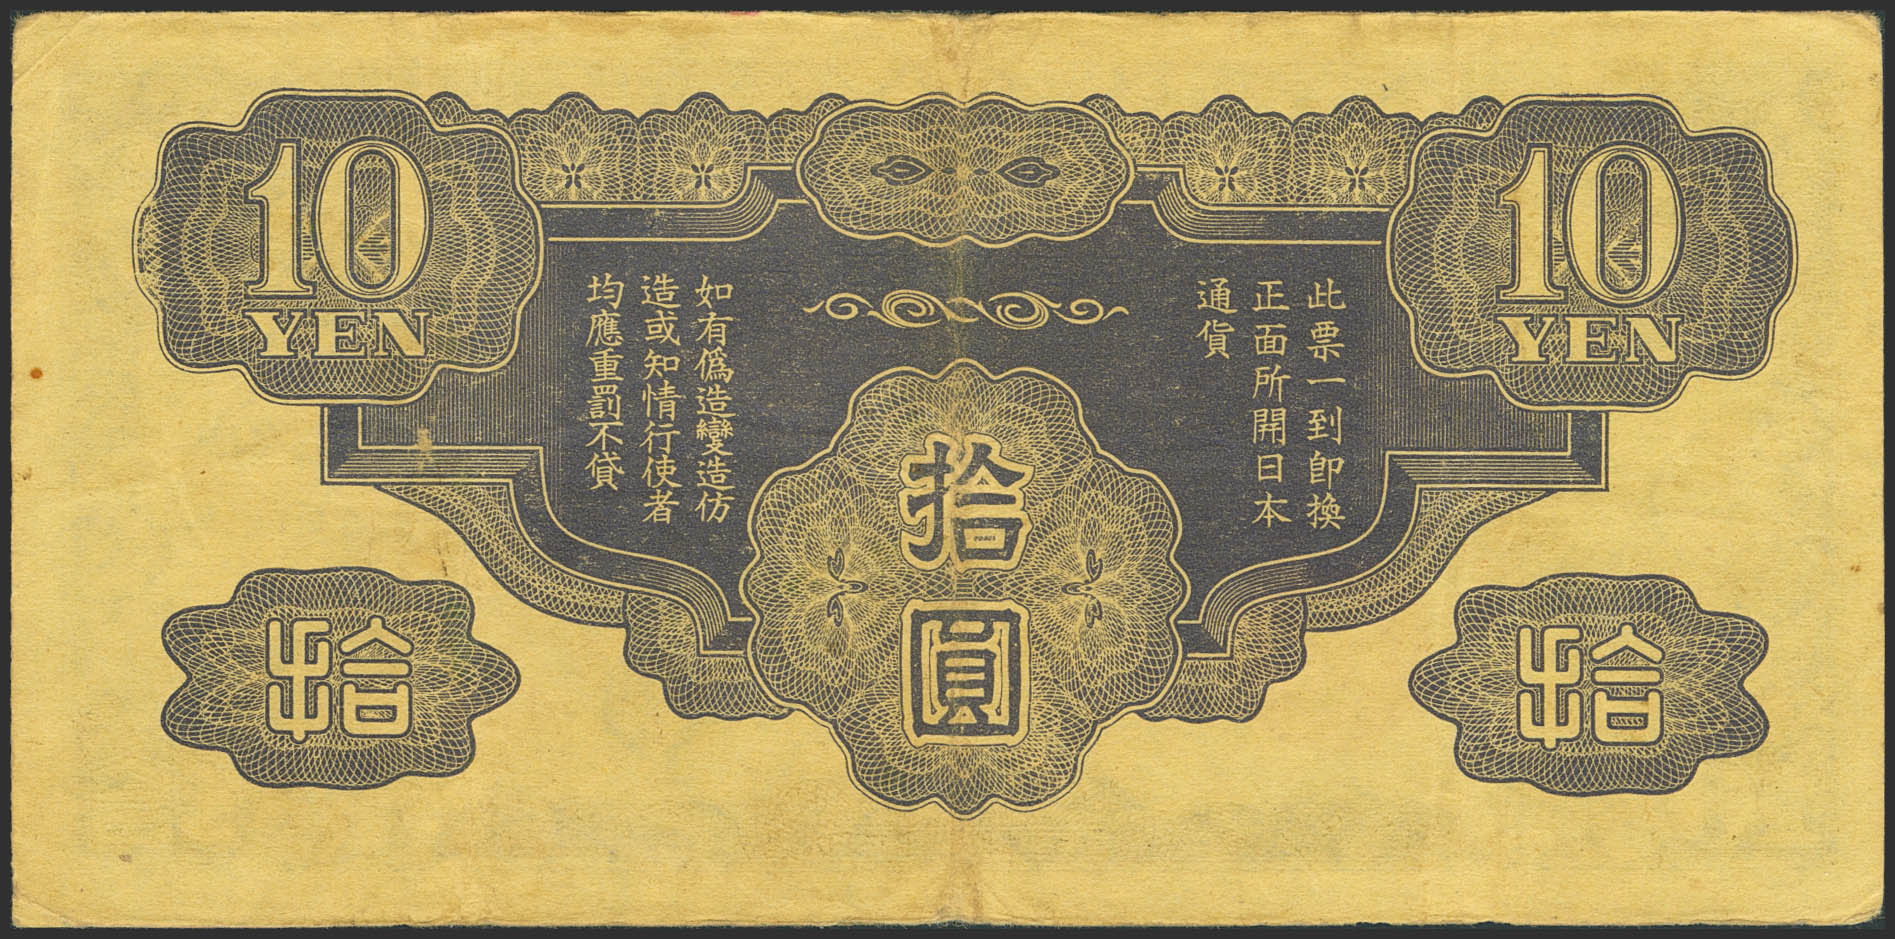 10
YEN
10
YEN
此票一到卽換
正面所開日本
通貨
如有僞造變造仿
造或知情行使者
均應重罰不貸
拾圓
拾
拾